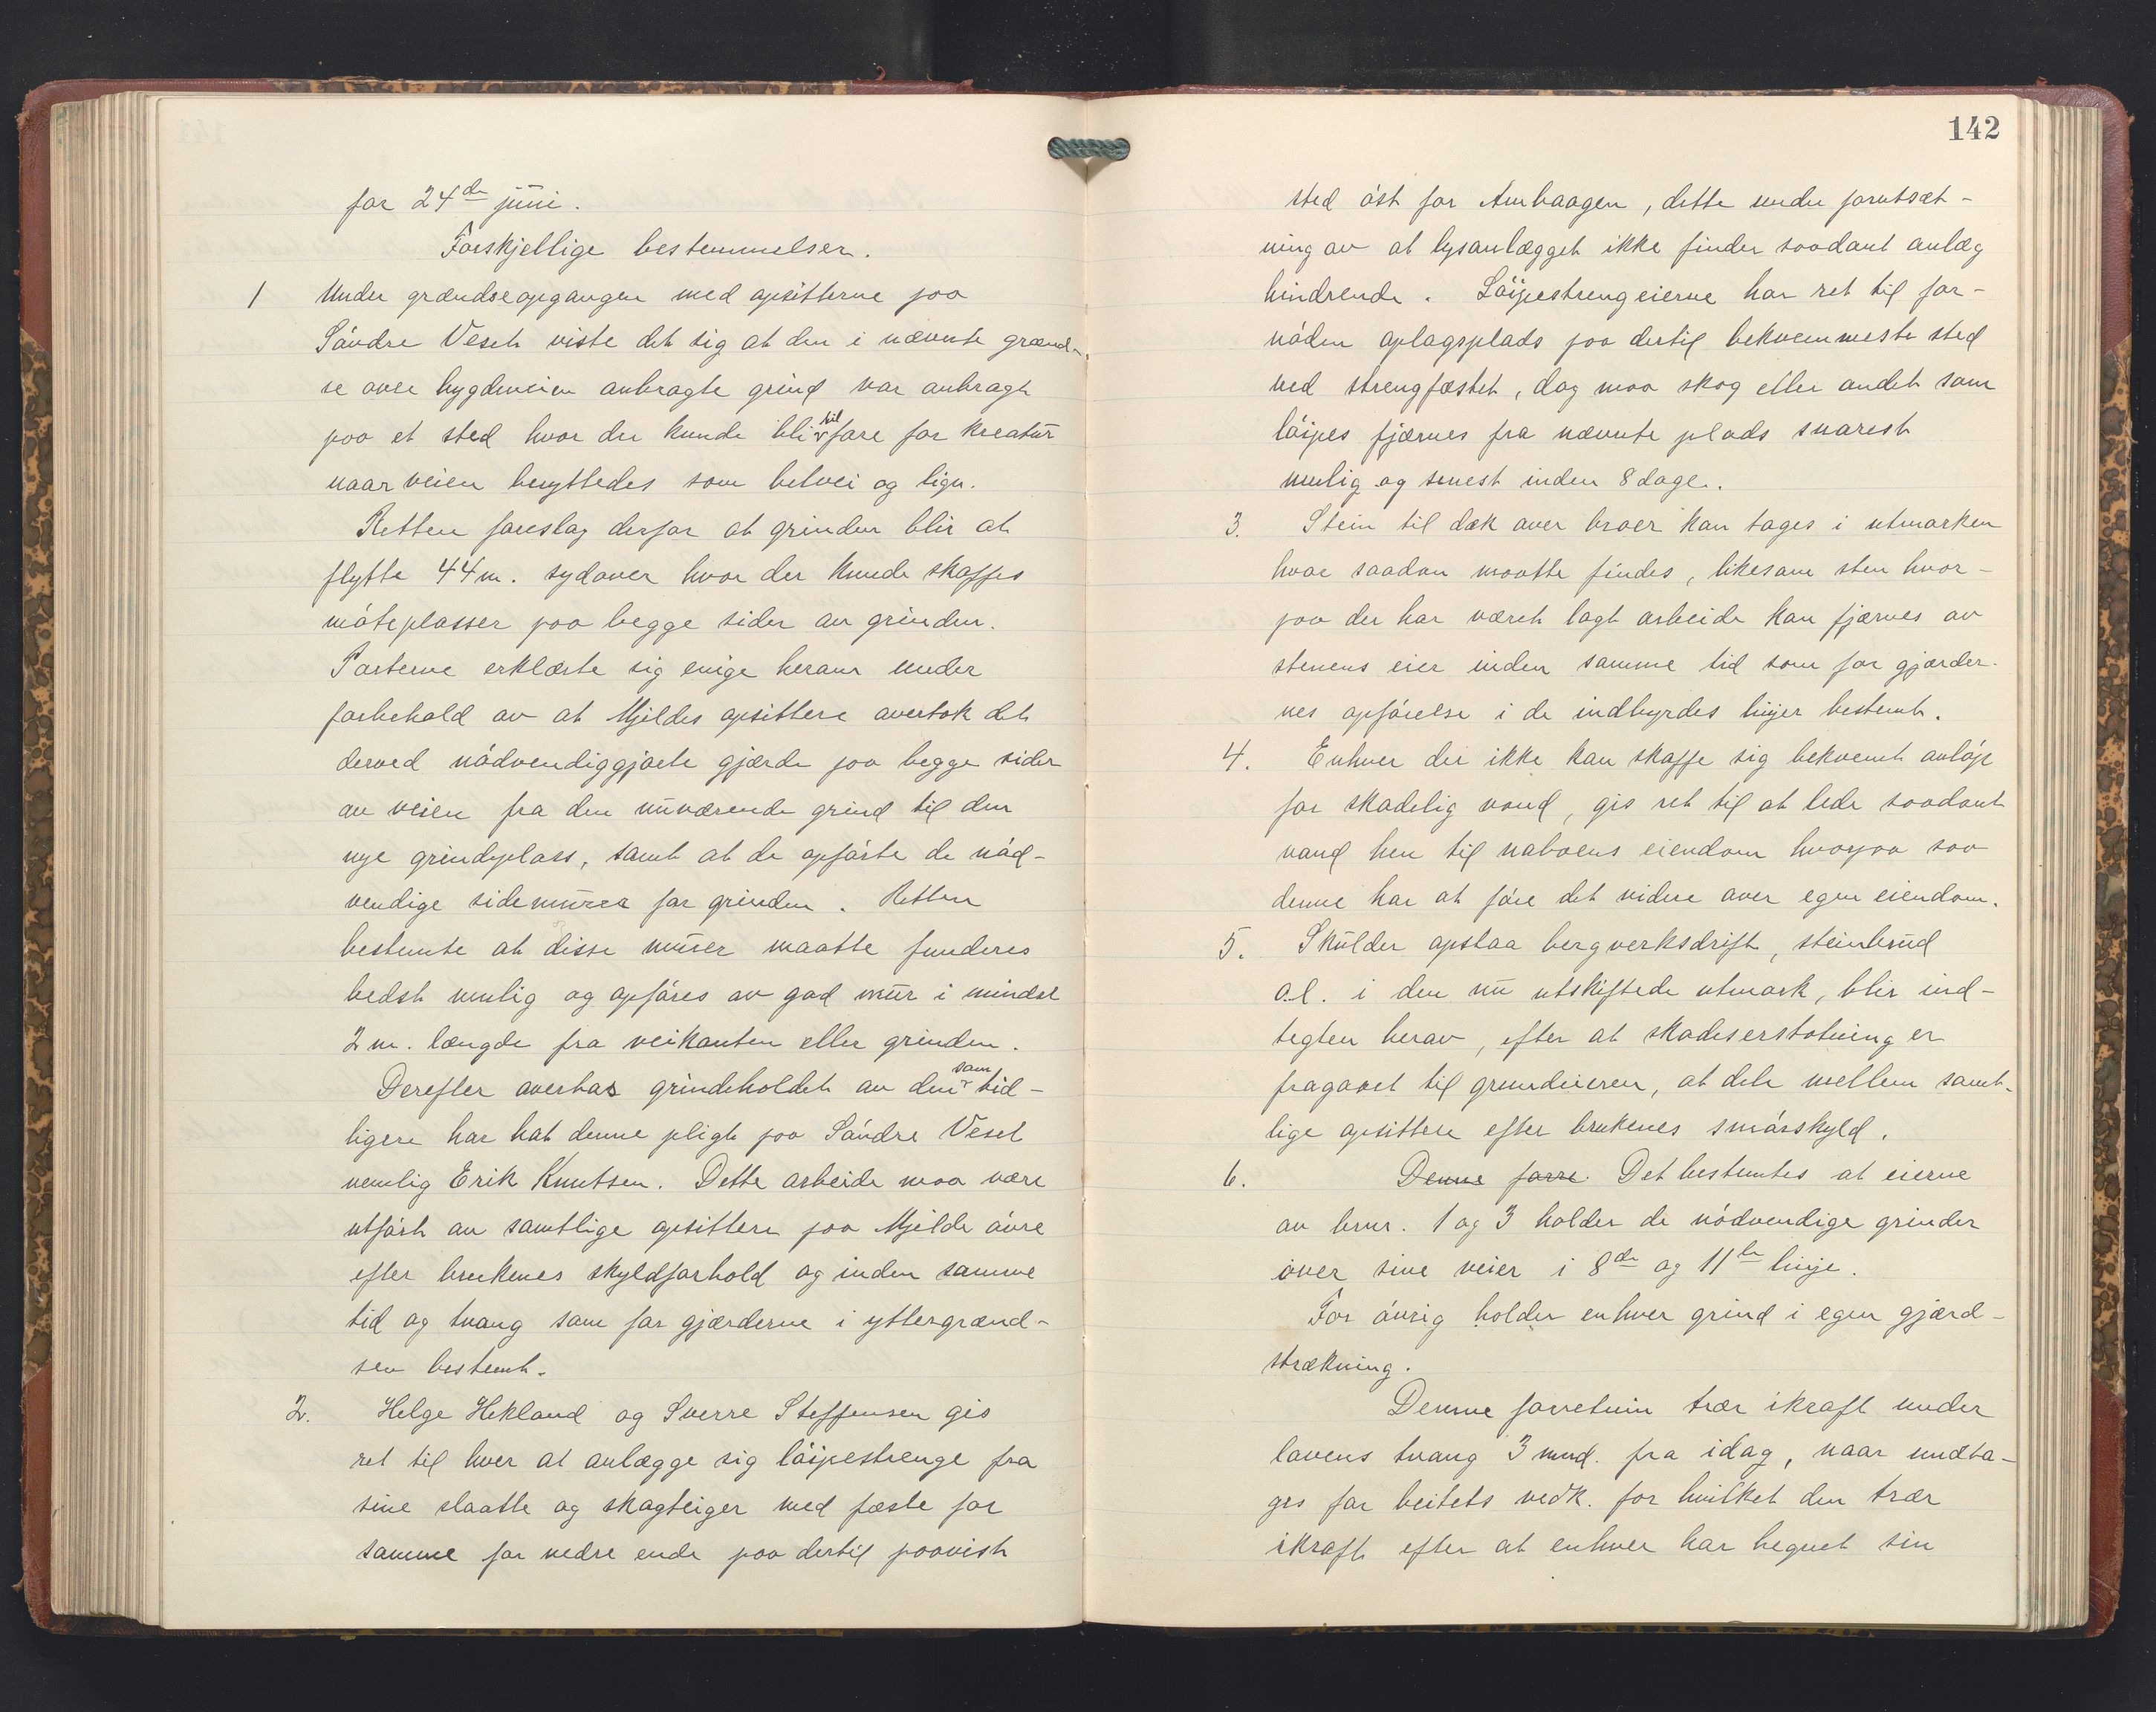 for 24de juni.
Forskjellige bestemmelser.
1 Under grændseopgangen med opsitterne paa
Söndre Veset viste det sig at den i nævnte grænd-
se over bygdeveien anbragte grind var anbragt
paa et sted hvor der kunde bli til fare for kreatur
naar veien benyttedes som belvei og lign.
Retten foreslog derfor at grinden blir at
flytte 44 m. sydover hvor der kunde skaffes
möteplasser paa begge sider av grinden.
Parterne erklærte sig enige herom under
forbehold av at Mjeldes opsittere overtok det
derved nödvendiggjorte gjærde paa begge sider
av veien fra den nuværende grind til den
nye grindeplass, samt at de opförte de nöd-
vendige sidemurer for grinden. Retten
bestemte at disse murer maatte funderes
bedst mulig og opföres av god mur i mindst
2 m. længde fra veikanten eller grinden.
Derefter overtas grindeholdet av den som tid-
ligere har hat denne pligt paa Söndre Veset
nemlig Erik Knutsen. Dette arbeide maa være
utfört av samtlige opsittere paa Mjelde övre
efter brukenes skyldforhold og inden samme
tid og tvang som for gjærderne i yttergrænd-
sen bestemt.
2. Helge Hekland og Sverre Steffensen gis
ret til hver at anlægge sig löipestrenge fra
sine slaatte og skogteiger med fæste for
samme for nedre ende paa dertil paavist
142
sted öst for Aurhaagen, dette under forutsæt-
ning av at lysanlægget ikke finder saadant anlæg
hindrende. Löipestrengeierne har ret til for-
nöden oplagsplads paa dertil bekvemmeste sted
ved strengfæstet, dog maa skog eller andet som
löipes fjærnes fra nævnte plads snarest
mulig og senest inden 8 dage.
3. Stein til dæk over broer kan tages i utmarken
hvor saadan maatte findes, likesom sten hvor-
paa der har været lagt arbeide kan fjærnes av
stenens eier inden samme tid som for gjærder-
nes opförelse i de indbyrdes linjer bestemt.
4. Enhver der ikke kan skaffe sig bekvemt avlöp
for skadelig vand, gis ret til at lede saadant
vand hen til naboens eiendom hvorpaa saa
denne har at före det videre over egen eiendom.
5. Skulder opstaa bergverksdrift, steinbrud
o.l. i den nu utskiftede utmark, blir ind-
tegten herav, efter at skadeserstatning er
fragaaet til grundeieren, at dele mellem samt-
lige opsittere efter brukenes smörskyld.
6. Denne forre. Det bestemtes at eierne
av brnr. 1 og 3 holder de nödvendige grinder
over sine veier i 8de og 11te linje.
For övrig holder enhver grind i egen gjærd-
strækning.
Denne forretnin trær ikraft under
lovens tvang 3 mnd. fra idag, naar undta-
ges for beitets vedk. for hvilket den trær
ikraft efter at enhver har hegnet sin